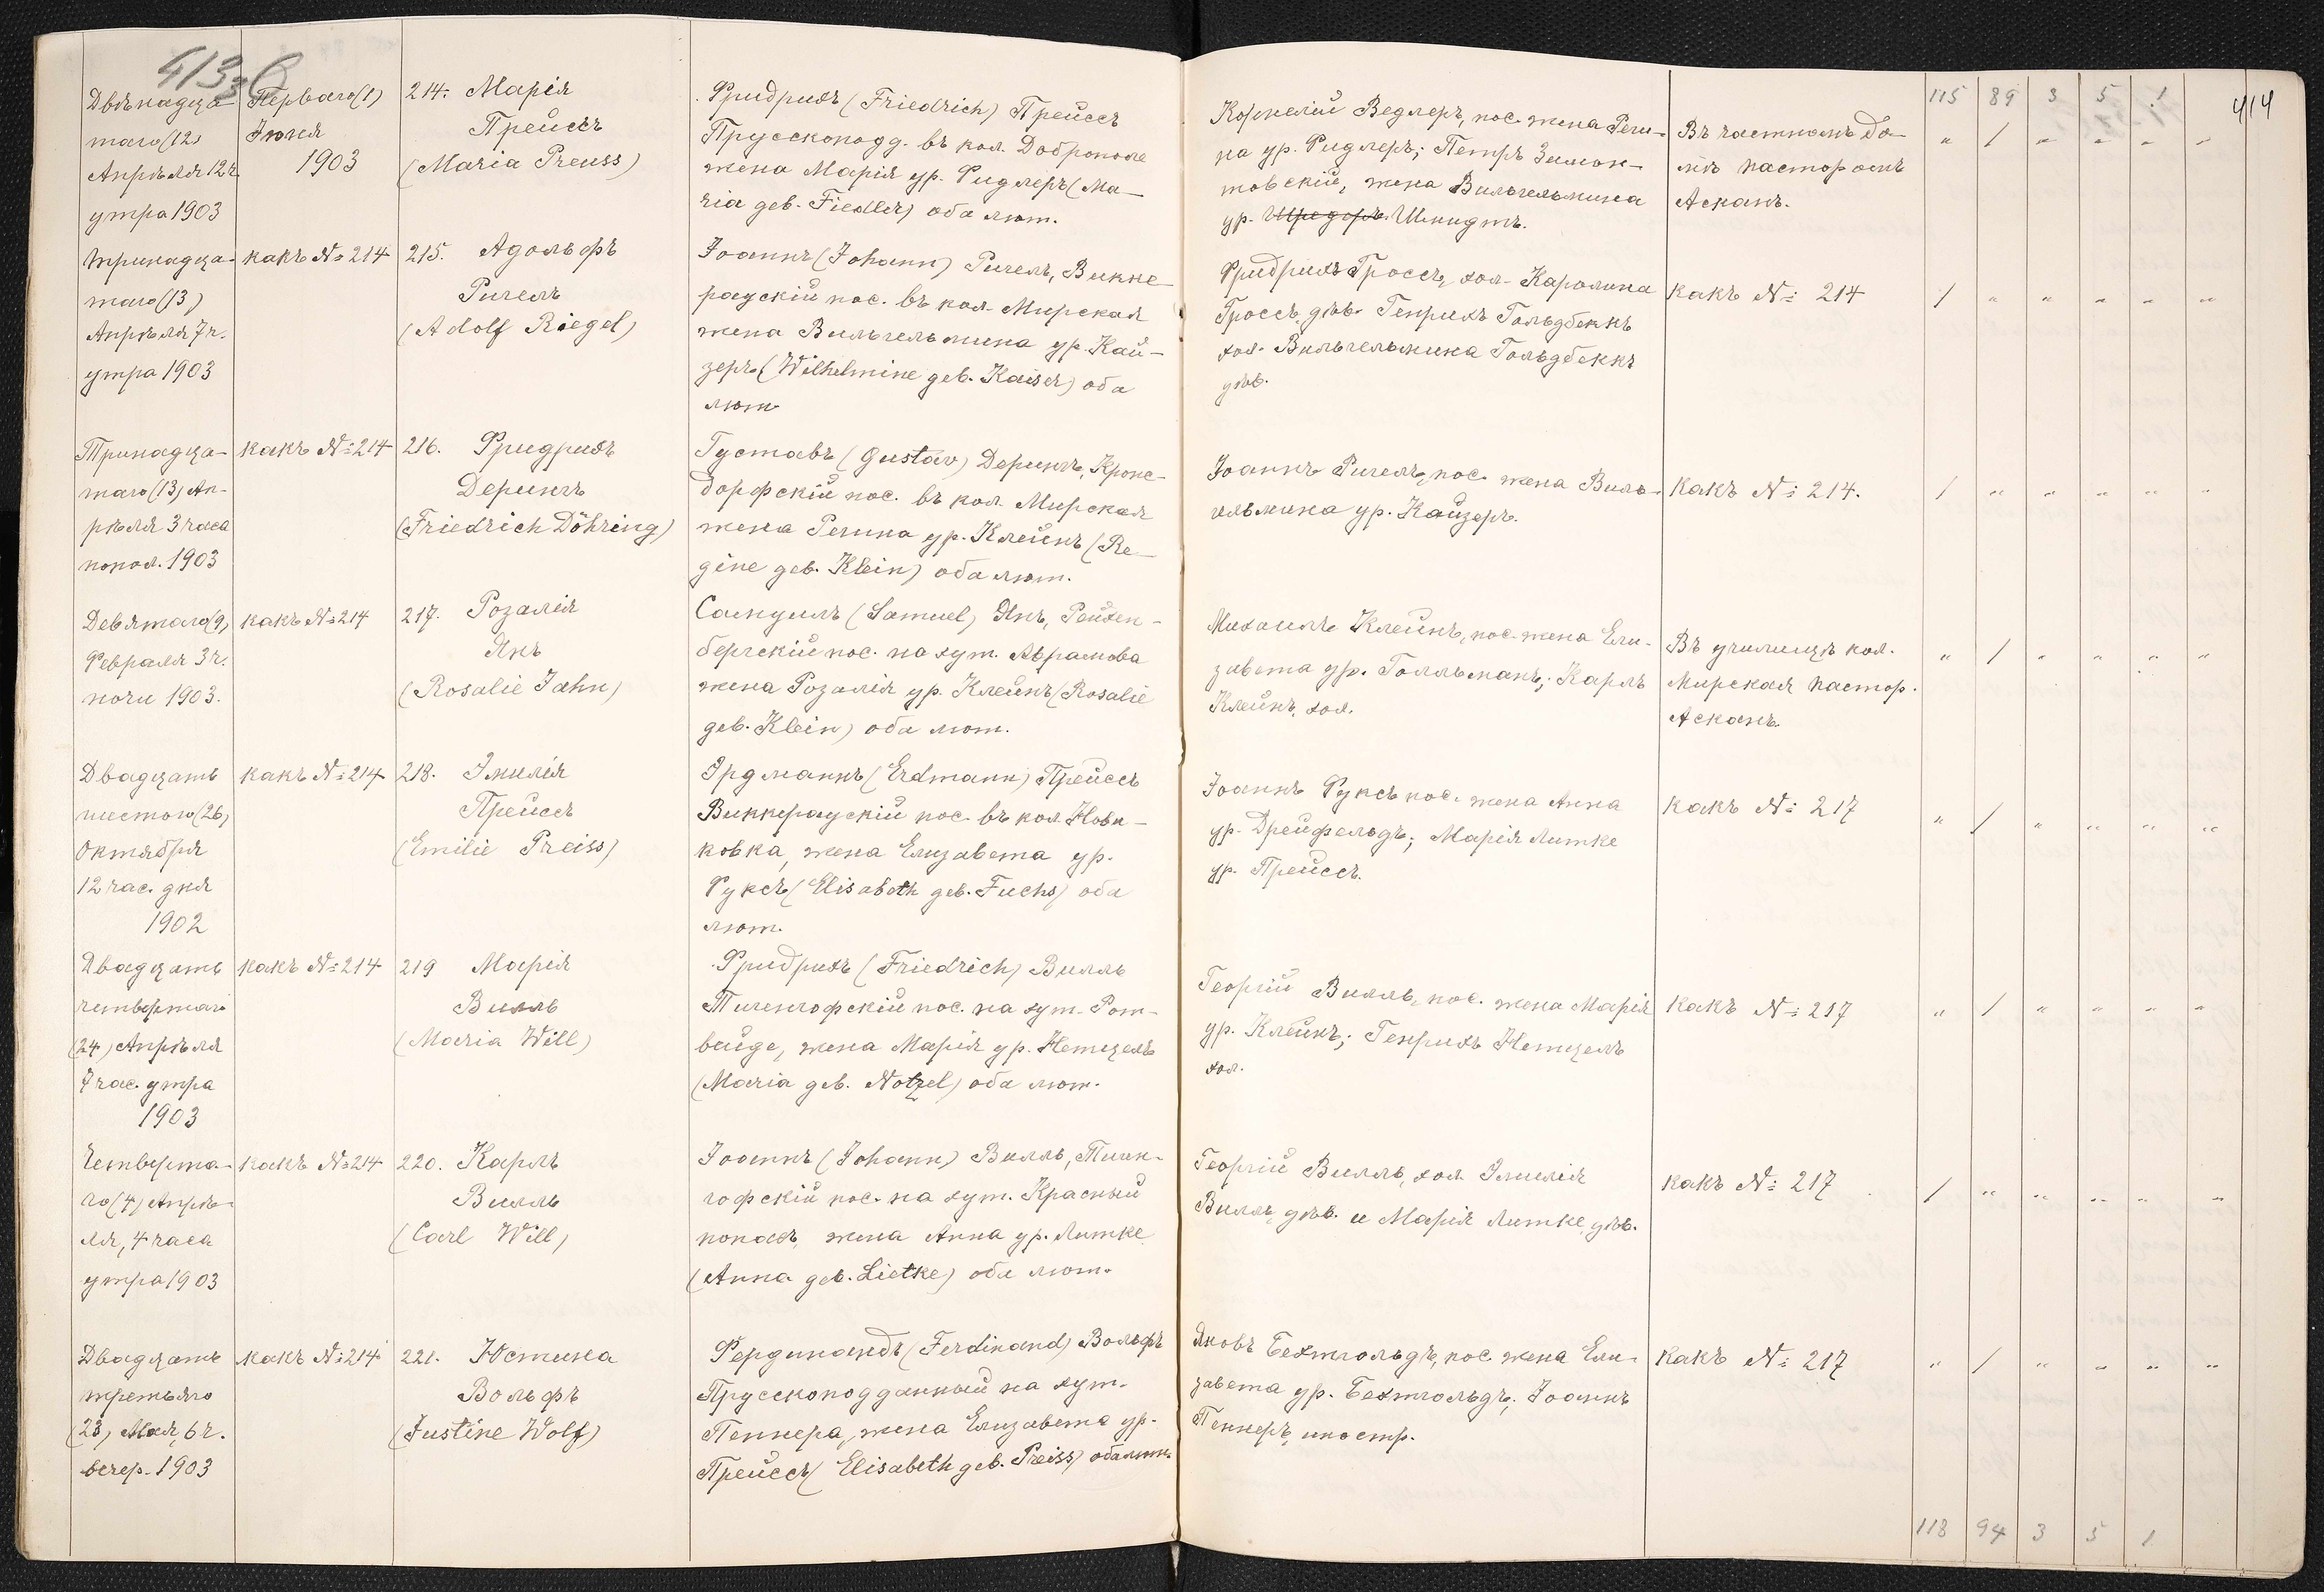 413
414
115 89 3 5 1
Двѣнадца-
таго (12)
Апрѣля 12 ч.
утра 1903
Перваго (1)
Іюня
1903
214. Марія
Прейссъ
(Maria Preuss)
Фридрихъ (Friedrich) Прейссъ
Прусскоподд. въ кол. Доброполе
жена Марія ур. Фидлеръ (Ma-
ria geb. Fiedler) оба лют.
Корнелій Ведлеръ, пос. жена Реги-
на ур. Фидлеръ; Петръ
товскій, жена Вильгельмина
ур. Шмидтъ.
Въ частномъ до-
мѣ пасторомъ
Асканъ.
" 1 " " " "
Тринадца-
таго (13)
Апрѣля 7 ч.
утра 1903
какъ №: 214
215. Адольфъ
Ригель
(Adolf Riegel)
Іоаннъ (Johann) Ригель, Викке-
раускій пос. въ кол. Мирская
жена Вильгельмина ур. Кай-
зеръ (Wilhelmine geb. Kaiser) оба
лют.
Фридрихъ Гроссъ, хол. Каролина
Гроссъ, дѣв. Генрихъ Гольдбеккъ
хол. Вильгельмина Гольдбеккъ
дѣв.
какъ №: 214
1 " " " " "
Тринадца-
таго (13) Ап-
рѣля 3 часа
попол. 1903
какъ №: 214
216. Фридрихъ
Дерингъ
(Friedrich Döhring)
Густавъ (Gustav) Дерингъ, Кронс-
дорфскій пос. въ кол. Мирская
жена Регина ур. Клейнъ (Re-
gine geb. Klein) оба лют.
Іоаннъ Ригель, пос. жена Виль-
гельмина ур. Кайзеръ.
какъ №: 214.
1 " " " " "
Девятаго (9)
Февраля 3 ч.
ночи 1903.
какъ №: 214
217. Розалія
Янъ
(Rosalie Jahn)
Самуилъ (Samuel) Янъ, Рейхен-
бергскій пос. на хут. Абрамова
жена Розалія ур. Клейнъ (Rosalie
geb. Klein) оба лют.
Михаилъ Клейнъ, пос. жена Ели-
завета ур. Голльманъ; Карлъ
Клейнъ, хол.
Въ училищѣ кол.
Мирская пастор.
Асканъ.
" 1 " " " "
Двадцать
шестого (26)
Октября
12 час. дня
1902
какъ №: 214
218. Эмилія
Прейссъ
(Emilie Preiss)
Эрдманнъ (Erdmann) Прейссъ
Виккераускій пос. въ кол. Нови-
ковка, жена Елизавета ур.
Фуксъ (Elisabeth geb. Fuchs) оба
лют.
Іоаннъ Фуксъ пос. жена Анна
ур. Дрейфельдъ; Марія Литке
ур. Прейссъ.
какъ №: 217
" 1 " " " "
Двадцать
четвертаго
(24) Апрѣля
7 час. утра
1903
какъ №: 214
219 Марія
Вилль
(Maria Will)
Фридрихъ (Friedrich) Вилль
Тигенгофскій пос. на хут. Рот-
вейде, жена Марія ур. Нетцель
(Maria geb. Notzel) оба лют.
Георгій Вилль, пос. жена Марія
ур. Клейнъ; Генрихъ Нетцель
хол.
какъ №: 217
" 1 " " " "
Четверта-
го (4) Апрѣ-
ля, 4 часа
утра 1903
какъ №: 214
220. Карлъ
Вилль
(Carl Will)
Іоаннъ (Johann) Вилль, Тиген-
гофскій пос. на хут. Красный
жена Анна ур. Литке
(Anna geb. Lietke) оба лют.
Георгій Вилль, хол. Эмилія
Вилль, дѣв. и Марія Литке, дѣв.
какъ №: 217
1 " " " " "
Двадцать
третьяго
(23) Мая, 6 ч.
вечер. 1903
какъ №: 214
221. Юстина
Вольфъ
(Justine Wolf)
Фердинандъ (Ferdinand) Вольфъ
Прусскоподданный на хут.
Пеннера, жена Елизавета ур.
Прейссъ (Elisabeth geb. Preiss) оба лют.
Яковъ Бехтгольдъ, пос. жена Ели-
завета ур. Бехтгольдъ; Іоаннъ
Пеннеръ, иностр.
какъ №: 217
" 1 " " " "
118 94 3 5 1